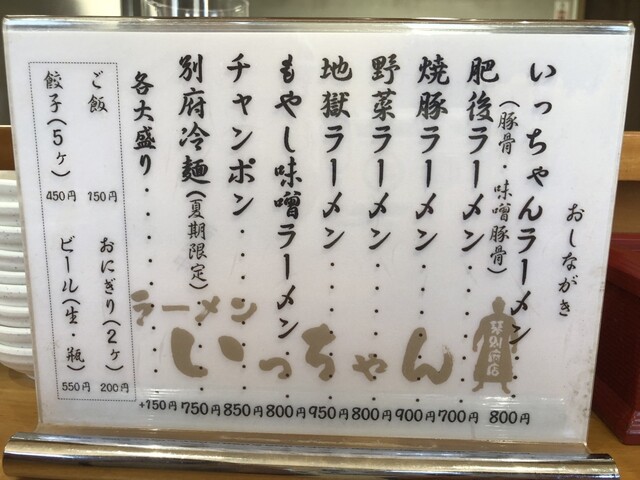 おしながき
いっちゃんラーメン・・・800円
(豚骨・味噌豚骨)
肥後ラーメン・・・・・・700円
焼豚ラーメン・・・・・・900円
野菜ラーメン・・・・・・800円
地獄ラーメン・・・・・・950円
もやし味噌ラーメン・・・800円
チャンポン・・・・・・・850円
別府冷麺(夏期限定)・・・750円
各大盛り・・・・・・・・+150円
ご飯 150円
おにぎり(2ヶ) 200円
餃子(5ヶ) 450円
ビール(生・瓶) 550円
ラーメン
いっちゃん